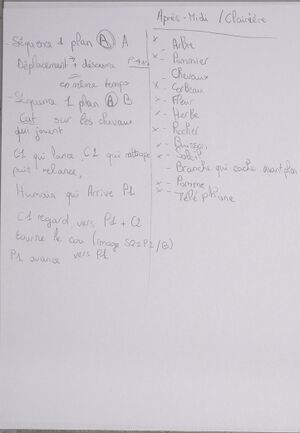 - Séquence 1 plan A A
Déplacement + discours
en même temps
- Séquence 1 plan A B
Cut sur les chevaux
qui jouent
C1 qui lance, C2 qui rattrape
puis relance,
Humain qui Arrive P1
C1 regard vers P1 + C2
tourne le cou (image SQ1P2/B)
P1 avance vers P1
Après-Midi / Clairière
x - Arbre
x - Pommier
- Chevaux
x - Corbeau
x - Fleur
x - Herbe
x - Rocher
x - Buisson
x - Soleil
- Branche qui cache avant plan
x - Pomme
- Téléphone